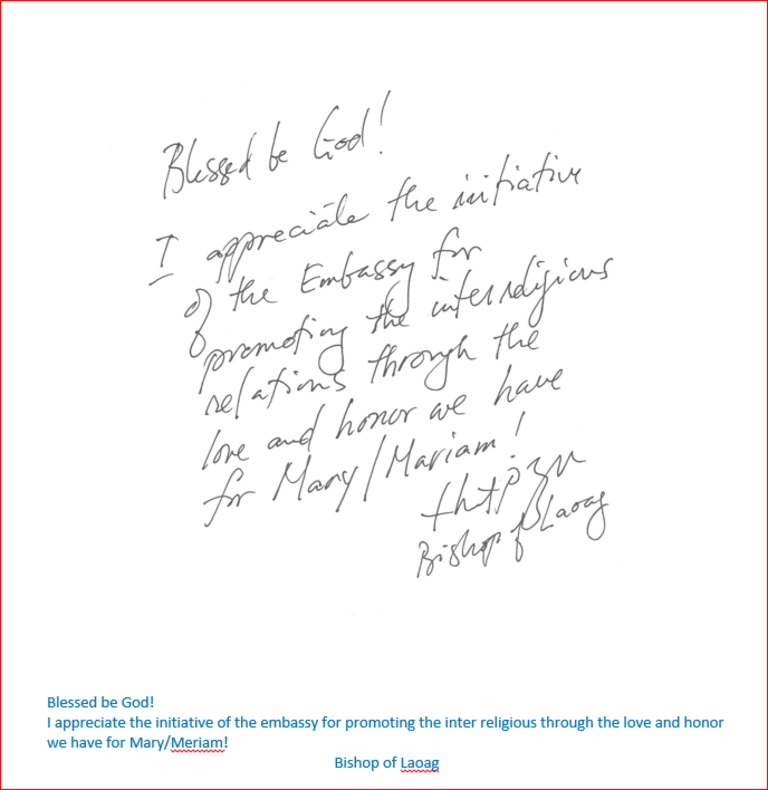 Blessed be God!
I appreciate the initiative
of the Embassy for
promoting the interreligious
relations through the
love and honor we have
for Mary/Mariam!
Bishop of Laoag
Blessed be God!
I appreciate the initiative of the embassy for promoting the inter religious through the love and honor
we have for Mary/Meriam!
Bishop of Laoag